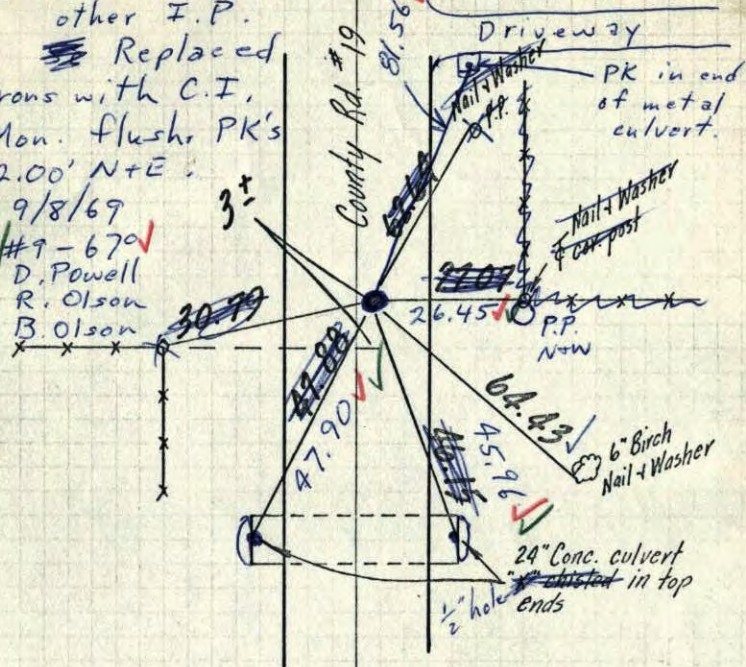 other I.P.
Replaced
rons with C.I.
Mon. flush, PK's
2.00' N+E.
9/8/69
#9-67°
D. Powell
R. Olson
B. Olson
County Rd. #19
81.56
Driveway
Nail & Washer
P.P.
PK in end
of metal
culvert.
Nail & Washer
℄ cor. post
3±
30.79
27.07
26.45
P.P.
N+W
47.88
47.90
46.15
45.96
64.43
6" Birch
Nail & Washer
24" Conc. culvert
"X" chisled in top
ends
1/2" hole